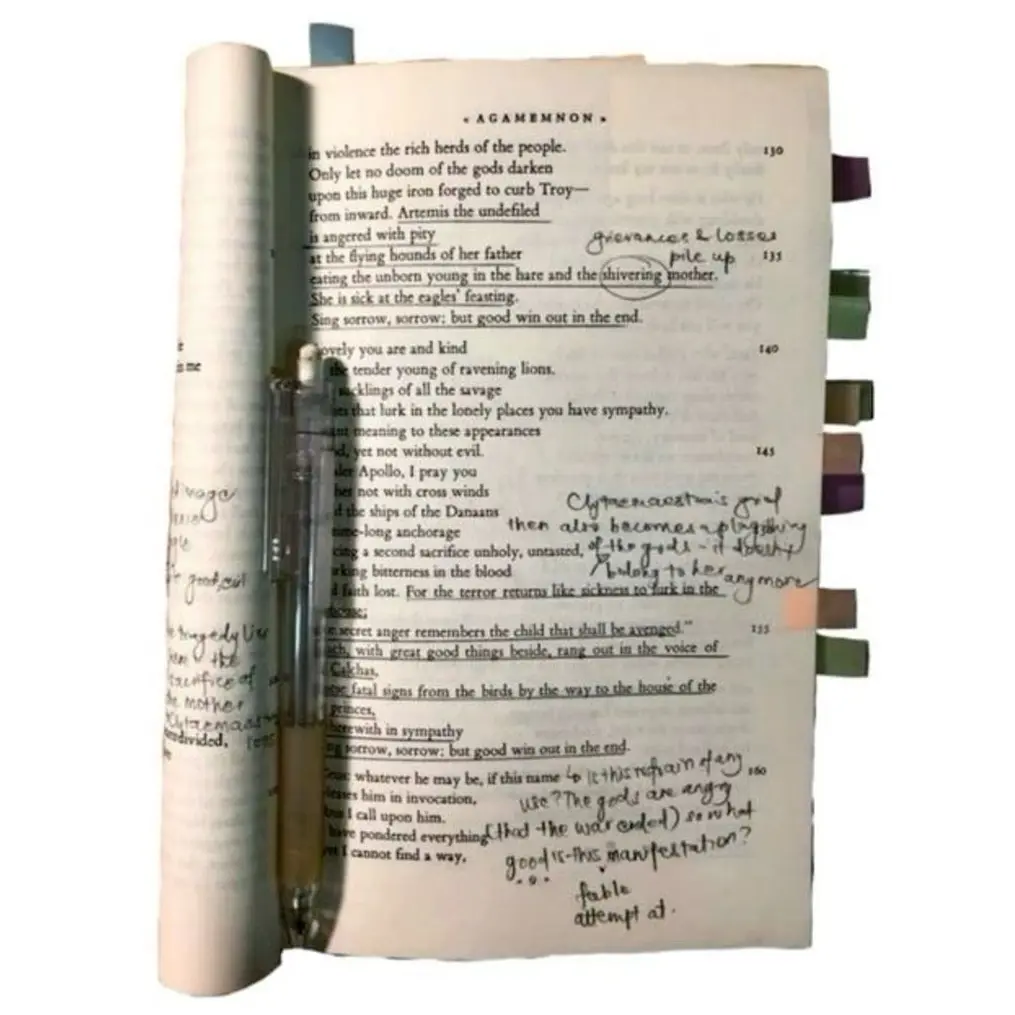 « AGAMEMNON »
in violence the rich herds of the people. 130
Only let no doom of the gods darken
upon this huge iron forged to curb Troy—
from inward. Artemis the undefiled
is angered with pity
grievances & losses
pile up
at the flying hounds of her father 135
eating the unborn young in the hare and the shivering mother.
She is sick at the eagles' feasting.
Sing sorrow, sorrow: but good win out in the end.
ovely you are and kind 140
the tender young of ravening lions.
sucklings of all the savage
that lurk in the lonely places you have sympathy.
meaning to these appearances
yet not without evil. 145
Apollo, I pray you
not with cross winds
the ships of the Danaans
time-long anchorage
a second sacrifice unholy, untasted,
bitterness in the blood
faith lost. For the terror returns like sickness to lurk in the
house;
secret anger remembers the child that shall be avenged." 155
with great good things beside, rang out in the voice of
Calchas,
fatal signs from the birds by the way to the house of the
princes,
herewith in sympathy
sorrow, sorrow: but good win out in the end.
whatever he may be, if this name 160
him in invocation,
I call upon him.
have pondered everything
I cannot find a way,
Clytaemaestra's grief
then also becomes a plaything
of the gods - it doesn't
belong to her anymore
↳ is this refrain of any
use? The gods are angry
(that the war ended) so what
good is this manifestation?
attempt at.
me
good
tragedy lies
the
sacrifice of
the mother
divided,